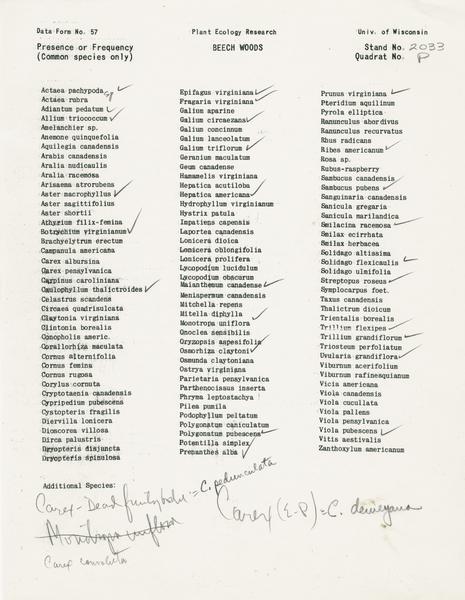 Data Form No. 57
Plant Ecology Research
Univ. of Wisconsin
Presence or Frequency
(Common species only)
BEECH WOODS
Stand No. 2033
Quadrat No. P
Actaea pachypoda sp ✓
Actaea rubra
Adiantum pedatum ✓
Allium tricoccum ✓
Amelanchier sp.
Anemone quinquefolia
Aquilegia canadensis
Arabis canadensis
Aralia nudicaulis
Aralia racemosa
Arisaema atrorubens ✓
Aster macrophyllus ✓
Aster sagittifolius
Aster shortii
Athyrium filix-femina ✓
Botrychium virginianum ✓
Brachyelytrum erectum
Campanula americana
Carex albursina
Carex pensylvanica
Carpinus caroliniana
Caulophyllum thalictroides ✓
Celastrus scandens
Circaea quadrisulcata
Claytonia virginiana
Clintonia borealis
Conopholis americ.
Corallorhiza maculata
Cornus alternifolia
Cornus femina
Cornus rugosa
Corylus cornuta
Cryptotaenia canadensis
Cypripedium pubescens
Cystopteris fragilis
Diervilla lonicera
Dioscorea villosa
Dirca palustris
Dryopteris disjuncta
Dryopteris spinulosa
Epifagus virginiana ✓
Fragaria virginiana ✓
Galium aparine
Galium circaezans ✓
Galium concinnum
Galium lanceolatum ✓
Galium triflorum ✓
Geranium maculatum
Geum canadense
Hamamelis virginiana
Hepatica acutiloba ✓
Hepatica americana ✓
Hydrophyllum virginianum
Hystrix patula
Impatiens capensis
Laportea canadensis
Lonicera dioica
Lonicera oblongifolia
Lonicera prolifera
Lycopodium lucidulum
Lycopodium obscurum
Maianthemum canadense ✓
Menispermum canadensis
Mitchella repens
Mitella diphylla ✓
Monotropa uniflora
Onoclea sensibilis
Oryzopsis aspesifolia ✓
Osmorhiza claytoni ✓
Osmunda claytoniana
Ostrya virginiana
Parietaria pensylvanica
Parthenocissus inserta
Phryma leptostachya
Pilea pumila
Podophyllum peltatum
Polygonatum caniculatum
Polygonatum pubescens ✓
Potentilla simplex ✓
Prenanthes alba ✓
Prunus virginiana ✓
Pteridium aquilinum
Pyrola elliptica
Ranunculus abordivus
Ranunculus recurvatus
Rhus radicans
Ribes americanum ✓
Rosa sp.
Rubus-raspberry
Sambucus canadensis
Sambucus pubens ✓
Sanguinaria canadensis
Sanicula gregaria
Sanicula marilandica
Smilacina racemosa ✓
Smilax ecirrhata
Smilax herbacea
Solidago altissima
Solidago flexicaulis ✓
Solidago ulmifolia
Streptopus roseus ✓
Symplocarpus foet.
Taxus canadensis
Thalictrum dioicum
Trientalis borealis
Trillium flexipes ✓
Trillium grandiflorum ✓
Triosteum perfoliatum
Uvularia grandiflora ✓
Viburnum acerifolium
Viburnum rafinesquianum
Vicia americana
Viola canadensis
Viola cucullata
Viola pallens
Viola pensylvanica
Viola pubescens ✓
Vitis aestivalis
Zanthoxylum americanum
Additional Species:
Carex - Dead fruity body = C. pedunculata
Carex (E-P) = C. deweyana
Monotropa uniflora
Carex convoluta